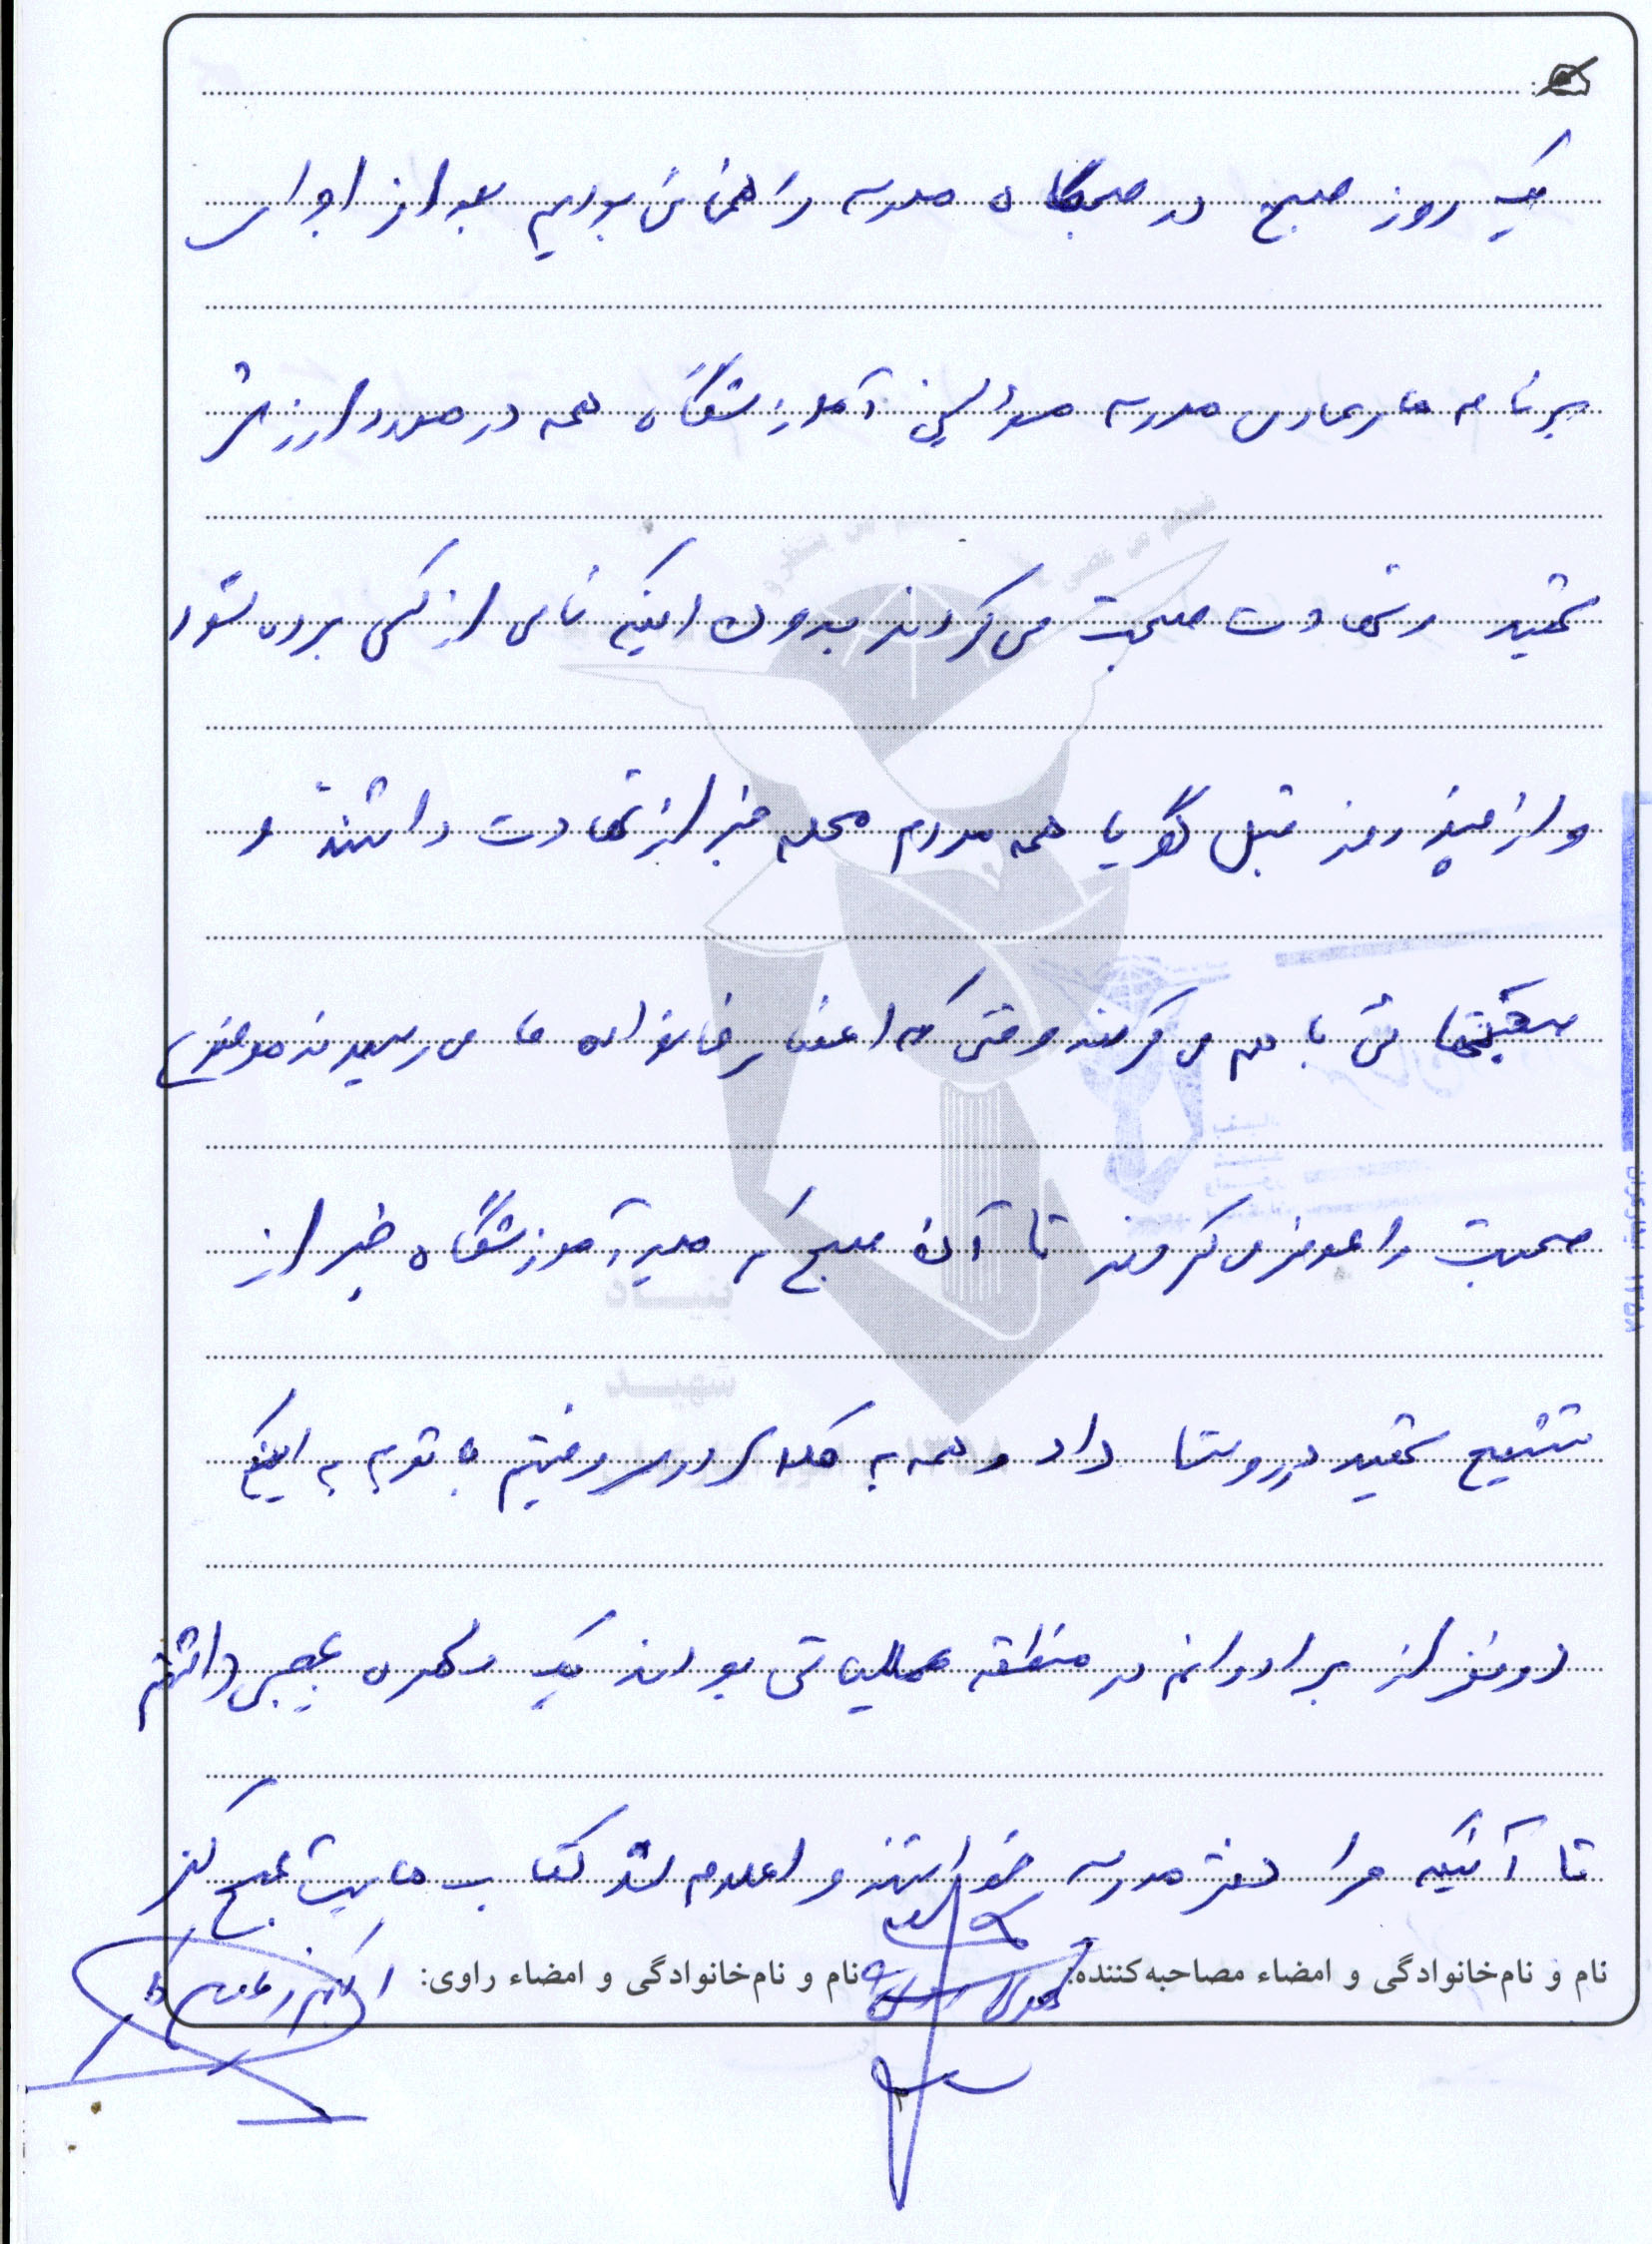 یک روز صبح در صبحگاه مدرسه راهنمائی بودیم بعد از اجرای
برنامه های عادی مدرسه مسئولین آموزشگاه همه در مورد ارزش
شهید و شهادت صحبت می کردند بدون اینکه نامی از کسی برده شود
و از چند روز قبل گویا همه مردم محله خبر از شهادت داشتند و
صحبتهائی با هم می کردند وقتی که اعضای خانواده ما می رسیدند موضوع
صحبت را عوض می کردند تا آن صبح که مدیر آموزشگاه خبر از
تشییع شهید در روستا داد و همه به کلاس درس رفتیم با توجه به اینکه
دو نفر از برادرانم در منطقه عملیاتی بودند یک دلهره عجیبی داشتم
تا آنکه مرا دفتر مدرسه خواستند و اعلام شد کتاب هایت جمع کن
نام و نام‌خانوادگی و امضاء مصاحبه‌کننده: نام و نام‌خانوادگی و امضاء راوی:
۲